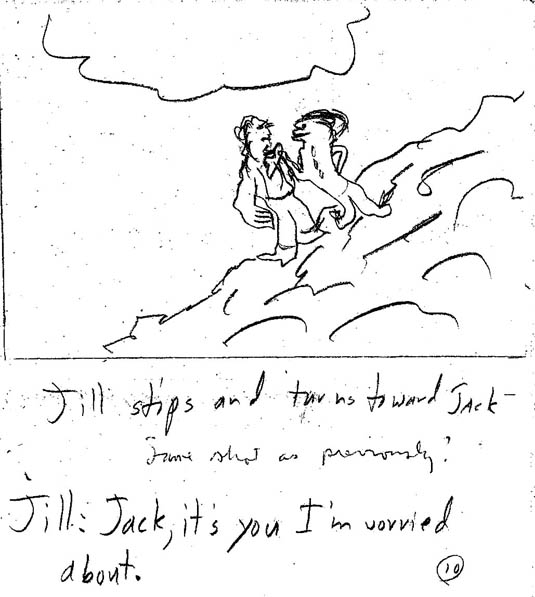 Jill stops and turns toward Jack—
Same shot as previously?
Jill: Jack, it's you I'm worried
about.
10